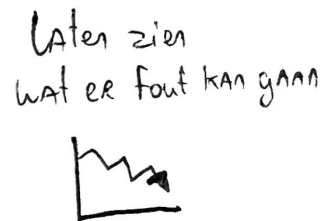 Laten zien
wat er fout kan gaan